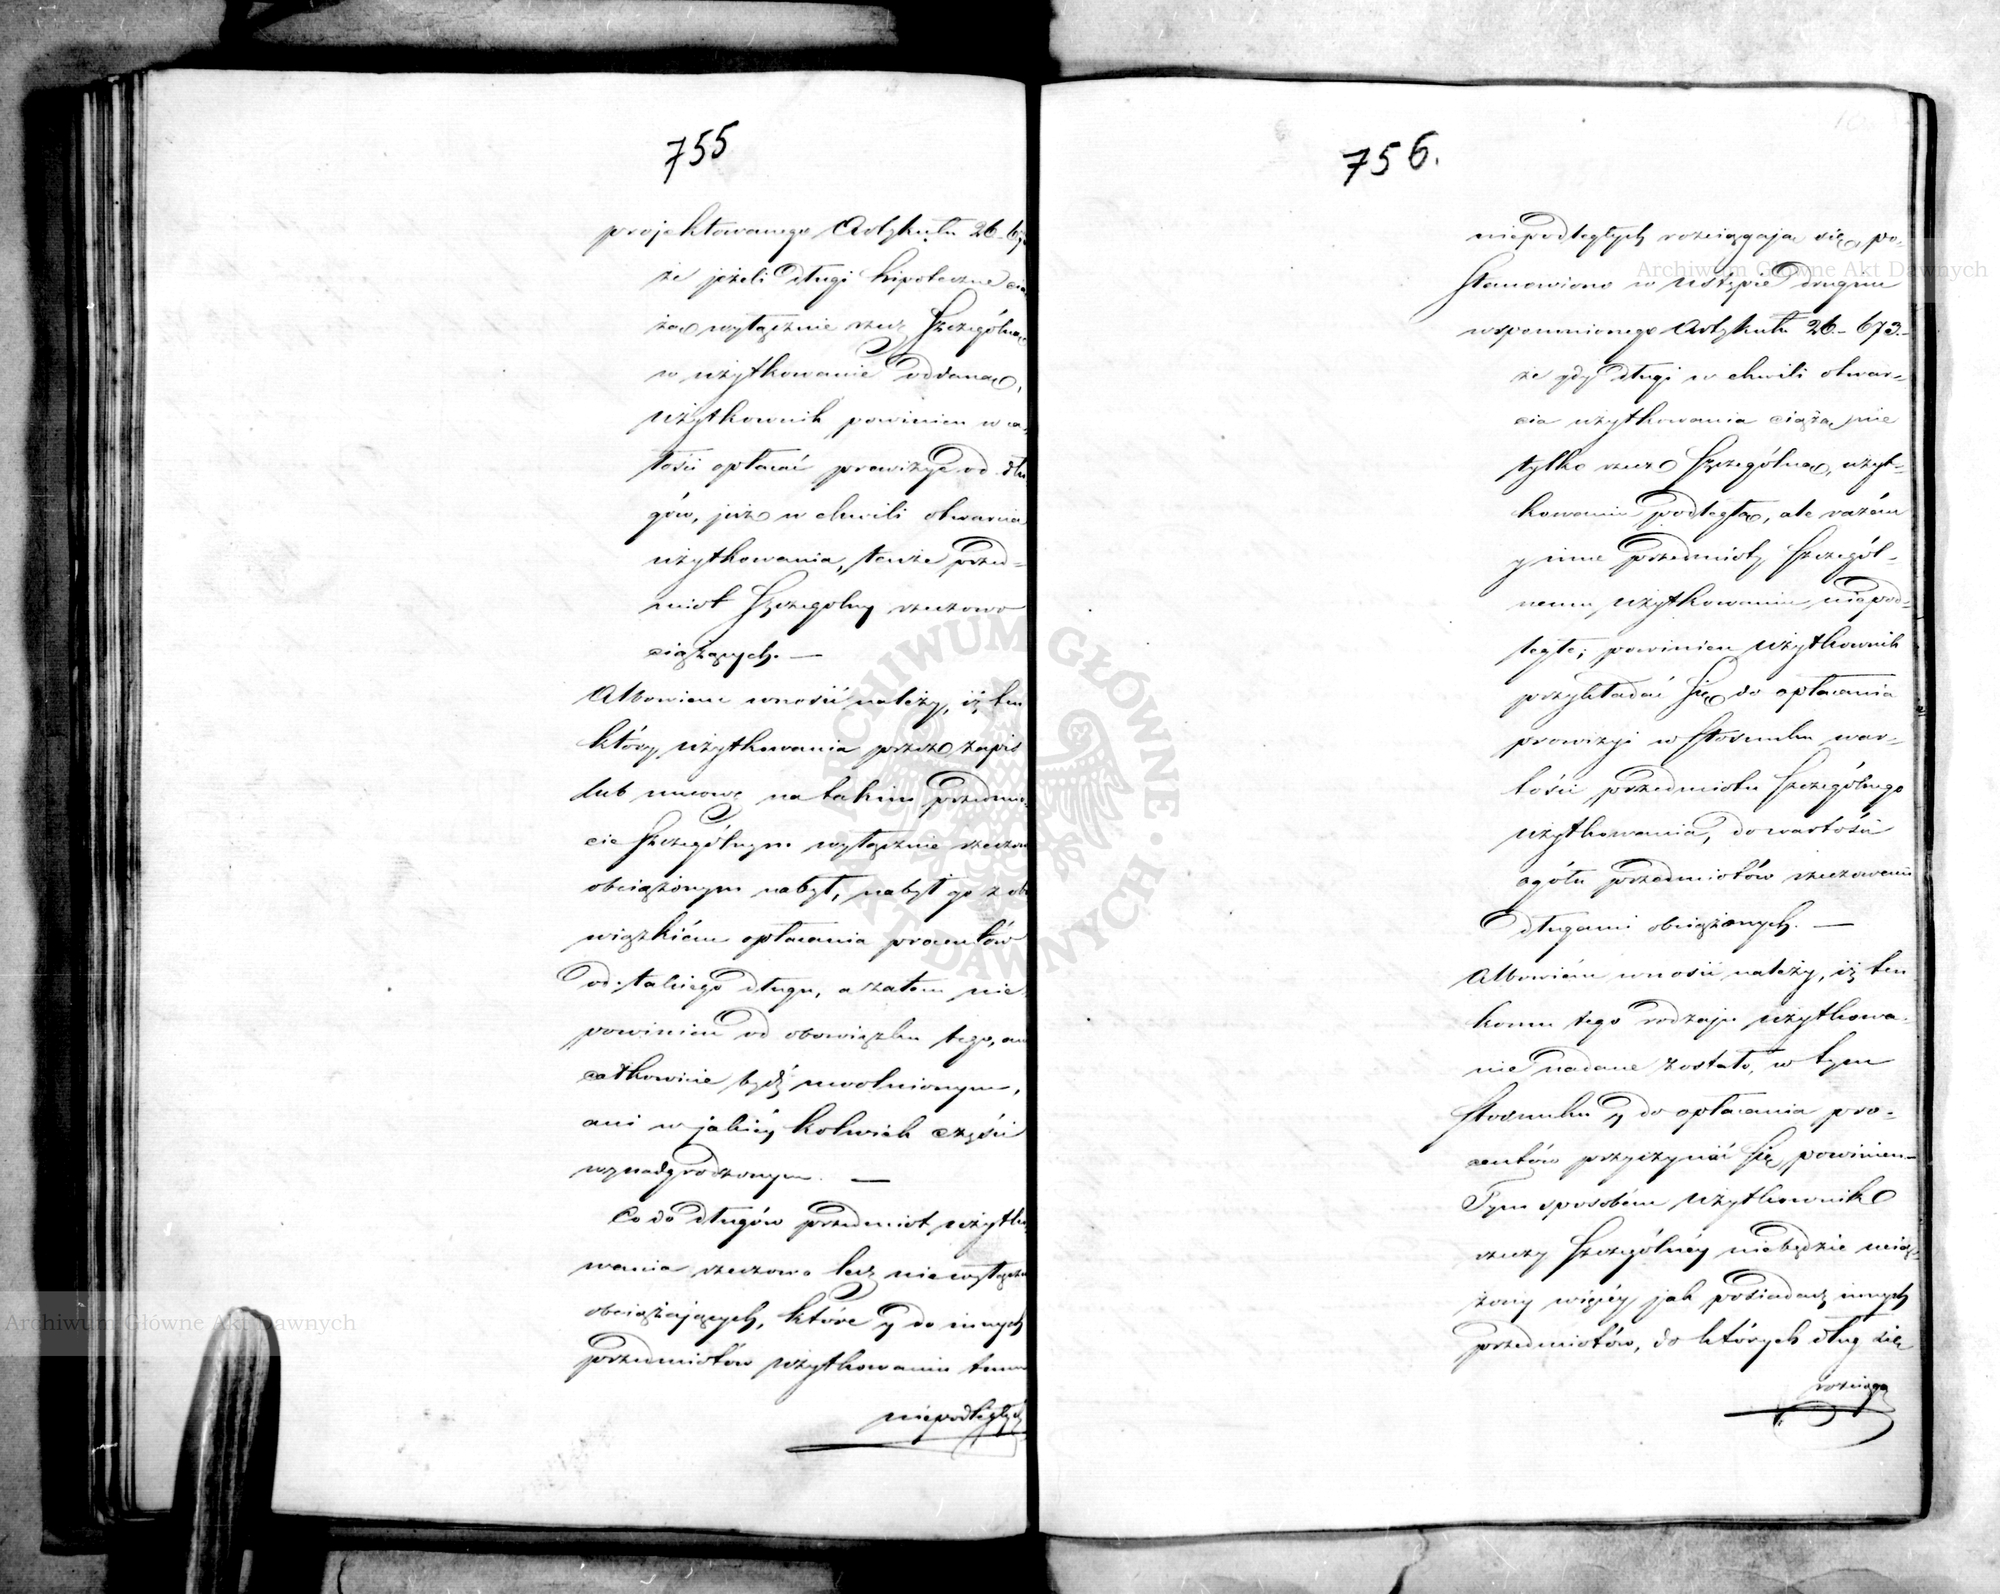 755
projektowanego Artykułu 26-67
że jeżeli długi hipoteczne cią
żą wyłącznie rzecz szczególną
w użytkowanie oddaną,
użytkownik powinien w ca-
łości opłacać prowizye od dłu
gów, już w chwili otwarcia
użytkowania, tenże przed-
miot szczególny rzeczowo
ciążących. —
Albowiem wnosić należy, iż ten
który użytkowania przez zapis
lub umowę na takim przedmio
cie szczególnym wyłącznie rzeczow
obciążonym nabył, nabył go z obo
wiązkiem opłacania procentów
od takiego długu, a zatem nie
powinien od obowiązku tego, ani
całkowicie bydź uwolnionym,
ani w jakiéy kolwiek części
wynadgrodzonym. —
Co do długów przedmiot użytko
wania rzeczowo lecz niewyłączn
obciążających, które y do innych
przedmiotów użytkowaniu temu
niepodległych
756.
niepodległych rozciągają się, po-
stanowiono w ustępie drugim
wspomnionego Artykułu 26.- 673.-
że gdy długi w chwili otwar-
cia użytkowania ciążą nie
tylko rzecz szczególną, użyt-
kowaniu podległą, ale razém
y inne przedmioty szczegól-
nemu użytkowaniu niepod-
ległe; powinien użytkownik
przykładać się do opłacania
prowizyi w stosunku war-
tości przedmiotu szczególnego
użytkowania, do wartości
ogółu przedmiotów rzeczowemi
długami obciążonych. —
Albowiém wnosić należy, iż ten
komu tego rodzaju użytkowa-
nie nadane zostało, w tym
stosunku y do opłacania pro-
centów przyczynić się powinien-
Tym sposobém użytkownik
rzeczy szczególnéy niebędzie uciąż
żony więcéy jak posiadacz innych
przedmiotów, do których dług się
rozciąga
Archiwum Główne Akt Dawnych
Archiwum Główne Akt Dawnych
ARCHIWUM GŁÓWNE AKT DAWNYCH